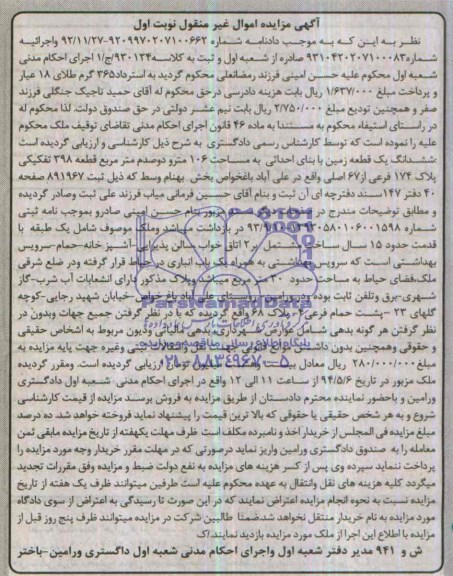 آگهی مزایده اموال غیر منقول نوبت اول
نظر به این که به موجب دادنامه شماره ۹۲۰۹۹۷۰۲۰۷۱۰۰۶۶۲-۹۲/۱۱/۲۷ واجرائیه
شماره ۹۳۱۰۴۲۰۲۰۷۱۰۰۰۸۳ صادره از شعبه اول و ثبت به کلاسه ۹۳۰۱۳۴/ج/۱ اجرای احکام مدنی
شعبه اول محکوم علیه حسن امینی فرزند رمضانعلی محکوم گردید به استرداد ۳۶۵ گرم طلای ۱۸ عیار
و پرداخت مبلغ ۱/۶۳۷/۰۰۰ ریال بابت هزینه دادرسی درحق محکوم له آقای حمید تاجیک جنگلی فرزند
صفر و همچنین تودیع مبلغ ۲/۷۵۰/۰۰۰ ریال بابت نیم عشر دولتی در حق صندوق دولت. لذا محکوم له
در راستای استیفاء محکوم به مستندا به ماده ۴۶ قانون اجرای احکام مدنی تقاضای توقیف ملک محکوم
علیه را نموده است که توسط کارشناس رسمی دادگستری به شرح ذیل کارشناسی و ارزیابی گردیده است
:ششدانگ یک قطعه زمین با بنای احداثی به مساحت ۱۰۶ مترو دوصدم متر مربع قطعه ۳۹۸ تفکیکی
پلاک ۱۷۴ فرعی از ۶۷ اصلی واقع در علی آباد باغخواص بخش بهنام وسط که ذیل ثبت ۸۹۱۹۶۷ صفحه
۴۰ دفتر ۱۴۷ سند دفترچه ای آن ثبت و بنام آقای حسین فرمانی میاب فرزند علی ثبت وصادر گردیده
و مطابق توضیحات مندرج در بنام حسن امینی صادرو بموجب نامه ثبتی
شماره در بازداشت میباشد وملک موصوف شامل یک طبقه با
قدمت حدود ۱۵ سال مشتمل بر ۲ اتاق خواب سالن پذیرایی آشپزخانه-حمام-سرویس
بهداشتی است که سرویس بهداشتی به همراه یک باب انباری در حیاط قرار گرفته ودر ضلع شرقی
ملک.فضای حیاط به مساحت حدود ۳۰ متر مربع میباشد وپلاک مذکور دارای انشعابات آب شرب-گاز
شهری-برق وتلفن ثابت بوده ودر ورامین روستای علی آباد باغ خواص-خیابان شهید رجایی-کوچه
گلهای ۲۳ -پشت حمام پلاک ۶۸ واقع گردیده که با در نظر گرفتن جمیع جهات وبدون در
نظر گرفتن هر گونه بدهی شامل عوارض شهرداری بدهی مالیاتی ودیون مربوط به اشخاص حقیقی
و حقوقی وهمچنین بدون داشتن موانع قانونی وغیره جهت پایه مزایده به
مبلغ ۲۸۰/۰۰۰/۰۰۰ ریال معادل ارزیابی گردیده است. ومقرر گردیده
ملک مزبور در تاریخ ۹۴/۵/۶ از ساعت ۱۱ الی ۱۲ واقع در اجرای احکام مدنی شعبه اول دادگستری
ورامین و باحضور نماینده محترم دادستان از طریق مزایده به فروش برسد مزایده از قیمت کارشناسی
شروع و به هر شخص حقیقی یا حقوقی که بالا ترین قیمت را پیشنهاد نماید فروخته خواهد شد. ده درصد
مبلغ مزایده فی المجلس از خریدار اخذ و نامبرده مکلف است ظرف مهلت یکهفته از تاریخ مزایده مابقی ثمن
معامله را به صندوق دادگستری ورامین واریز نماید درصورتی که در مهلت مقرر خریدار وجه مورد مزایده را
پرداخت ننماید سپرده وی پس از کسر هزینه های مزایده به نفع دولت ضبط و مزایده وفق مقررات تجدید
میگردد کلیه هزینه های نقل وانتقال به عهده محکوم علیه است طرفین میتوانند ظرف یک هفته از تاریخ
مزایده نسبت به نحوه انجام مزایده اعتراض نمایند که در این صورت تا رسیدگی به اعتراض از سوی دادگاه
مورد مزایده به نام خریدار منتقل نخواهد شد.ضمنا طالبین شرکت در مزایده میتوانند ظرف پنج روز قبل از
مزایده با اطلاع این اجرا از ملک مورد مزایده بازدید نمایند.اک
ش و ۹۴۱ مدیر دفتر شعبه اول واجرای احکام مدنی شعبه اول داگستری ورامین-باختر
ParsNamadData
پایگاه اطلاع رسانی مناقصه و مزایده
۰۲۱-۸۸۳۴۹۶۷۰-۵